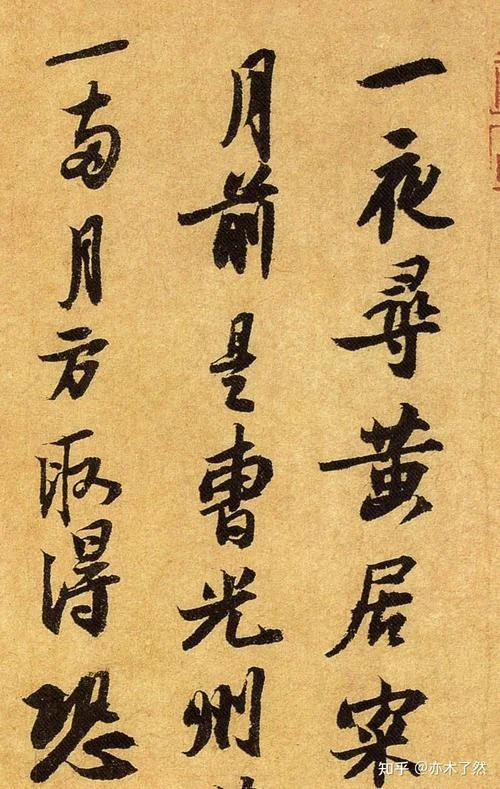 一夜尋黄居寀
月前是曹光州
一两月方取得恐
知乎 @亦木了然